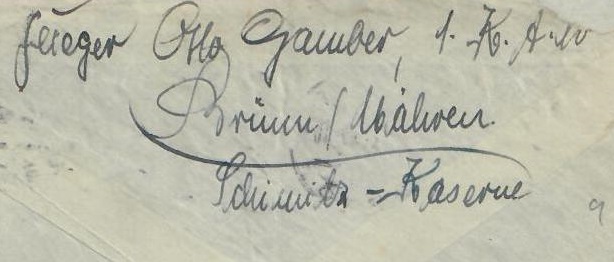 Flieger Otto Gamber, 1. K.
Brünn / Mähren.
Schimitz - Kaserne